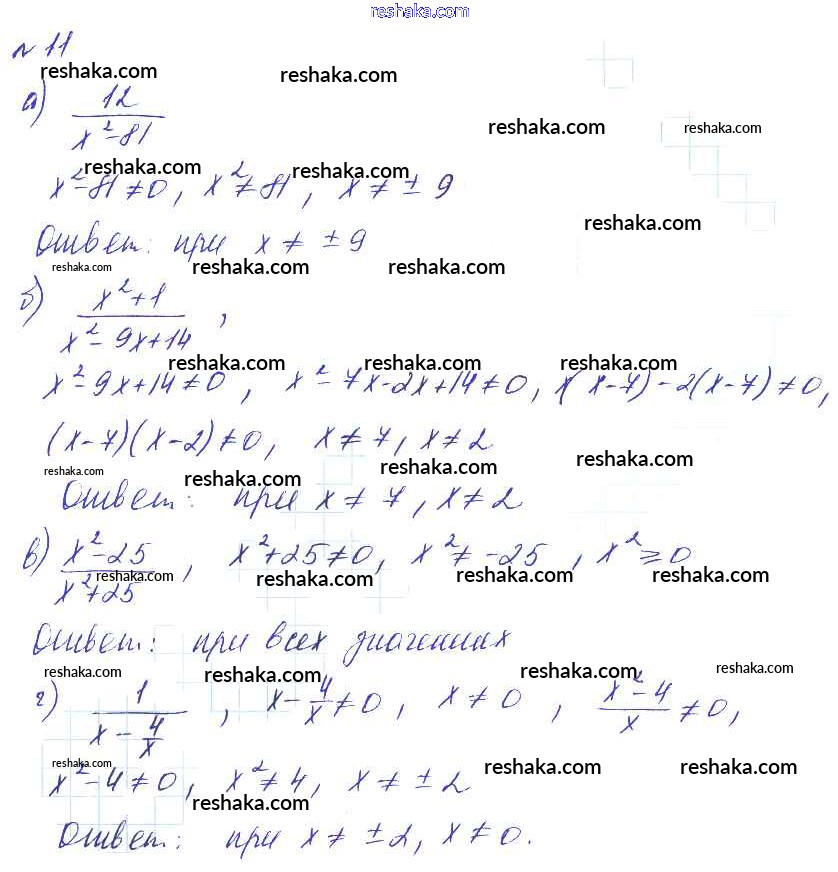 reshaka.com
№ 11
reshaka.com reshaka.com
а) 12 / x² - 81
reshaka.com reshaka.com
reshaka.com reshaka.com
x² - 81 ≠ 0, x² ≠ 81, x ≠ ± 9
reshaka.com
Ответ: при x ≠ ± 9
reshaka.com reshaka.com reshaka.com
б) x² + 1 / x² - 9x + 14,
reshaka.com reshaka.com reshaka.com
x² - 9x + 14 ≠ 0, x² - 7x - 2x + 14 ≠ 0, x(x - 7) - 2(x - 7) ≠ 0,
(x - 7)(x - 2) ≠ 0, x ≠ 7, x ≠ 2
reshaka.com reshaka.com reshaka.com
Ответ: при x ≠ 7, x ≠ 2
в) x² - 25 / x² + 25, x² + 25 ≠ 0, x² ≠ -25, x² ⩾ 0
reshaka.com reshaka.com reshaka.com reshaka.com
Ответ: при всех значениях
reshaka.com reshaka.com reshaka.com reshaka.com
г) 1 / x - 4/x, x - 4/x ≠ 0, x ≠ 0, x² - 4 / x ≠ 0,
reshaka.com reshaka.com reshaka.com
x² - 4 ≠ 0, x² ≠ 4, x ≠ ± 2
reshaka.com
Ответ: при x ≠ ± 2, x ≠ 0.